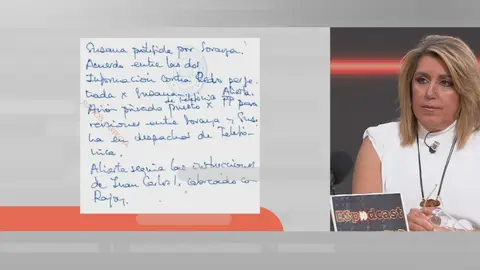 Susana putificada por Soraya!
Acuerdo entre las dos.
Información contra Pedro perjo.
dada x Susana. Alierta.
Avión privado de telefonía puesto x PP para
reuniones entre Soraya y Susa
na en despachos de Telefó
nica.
Alierta seguía las instrucciones
de Juan Carlos I, cabreado con
Rajoy.
ESpodcast